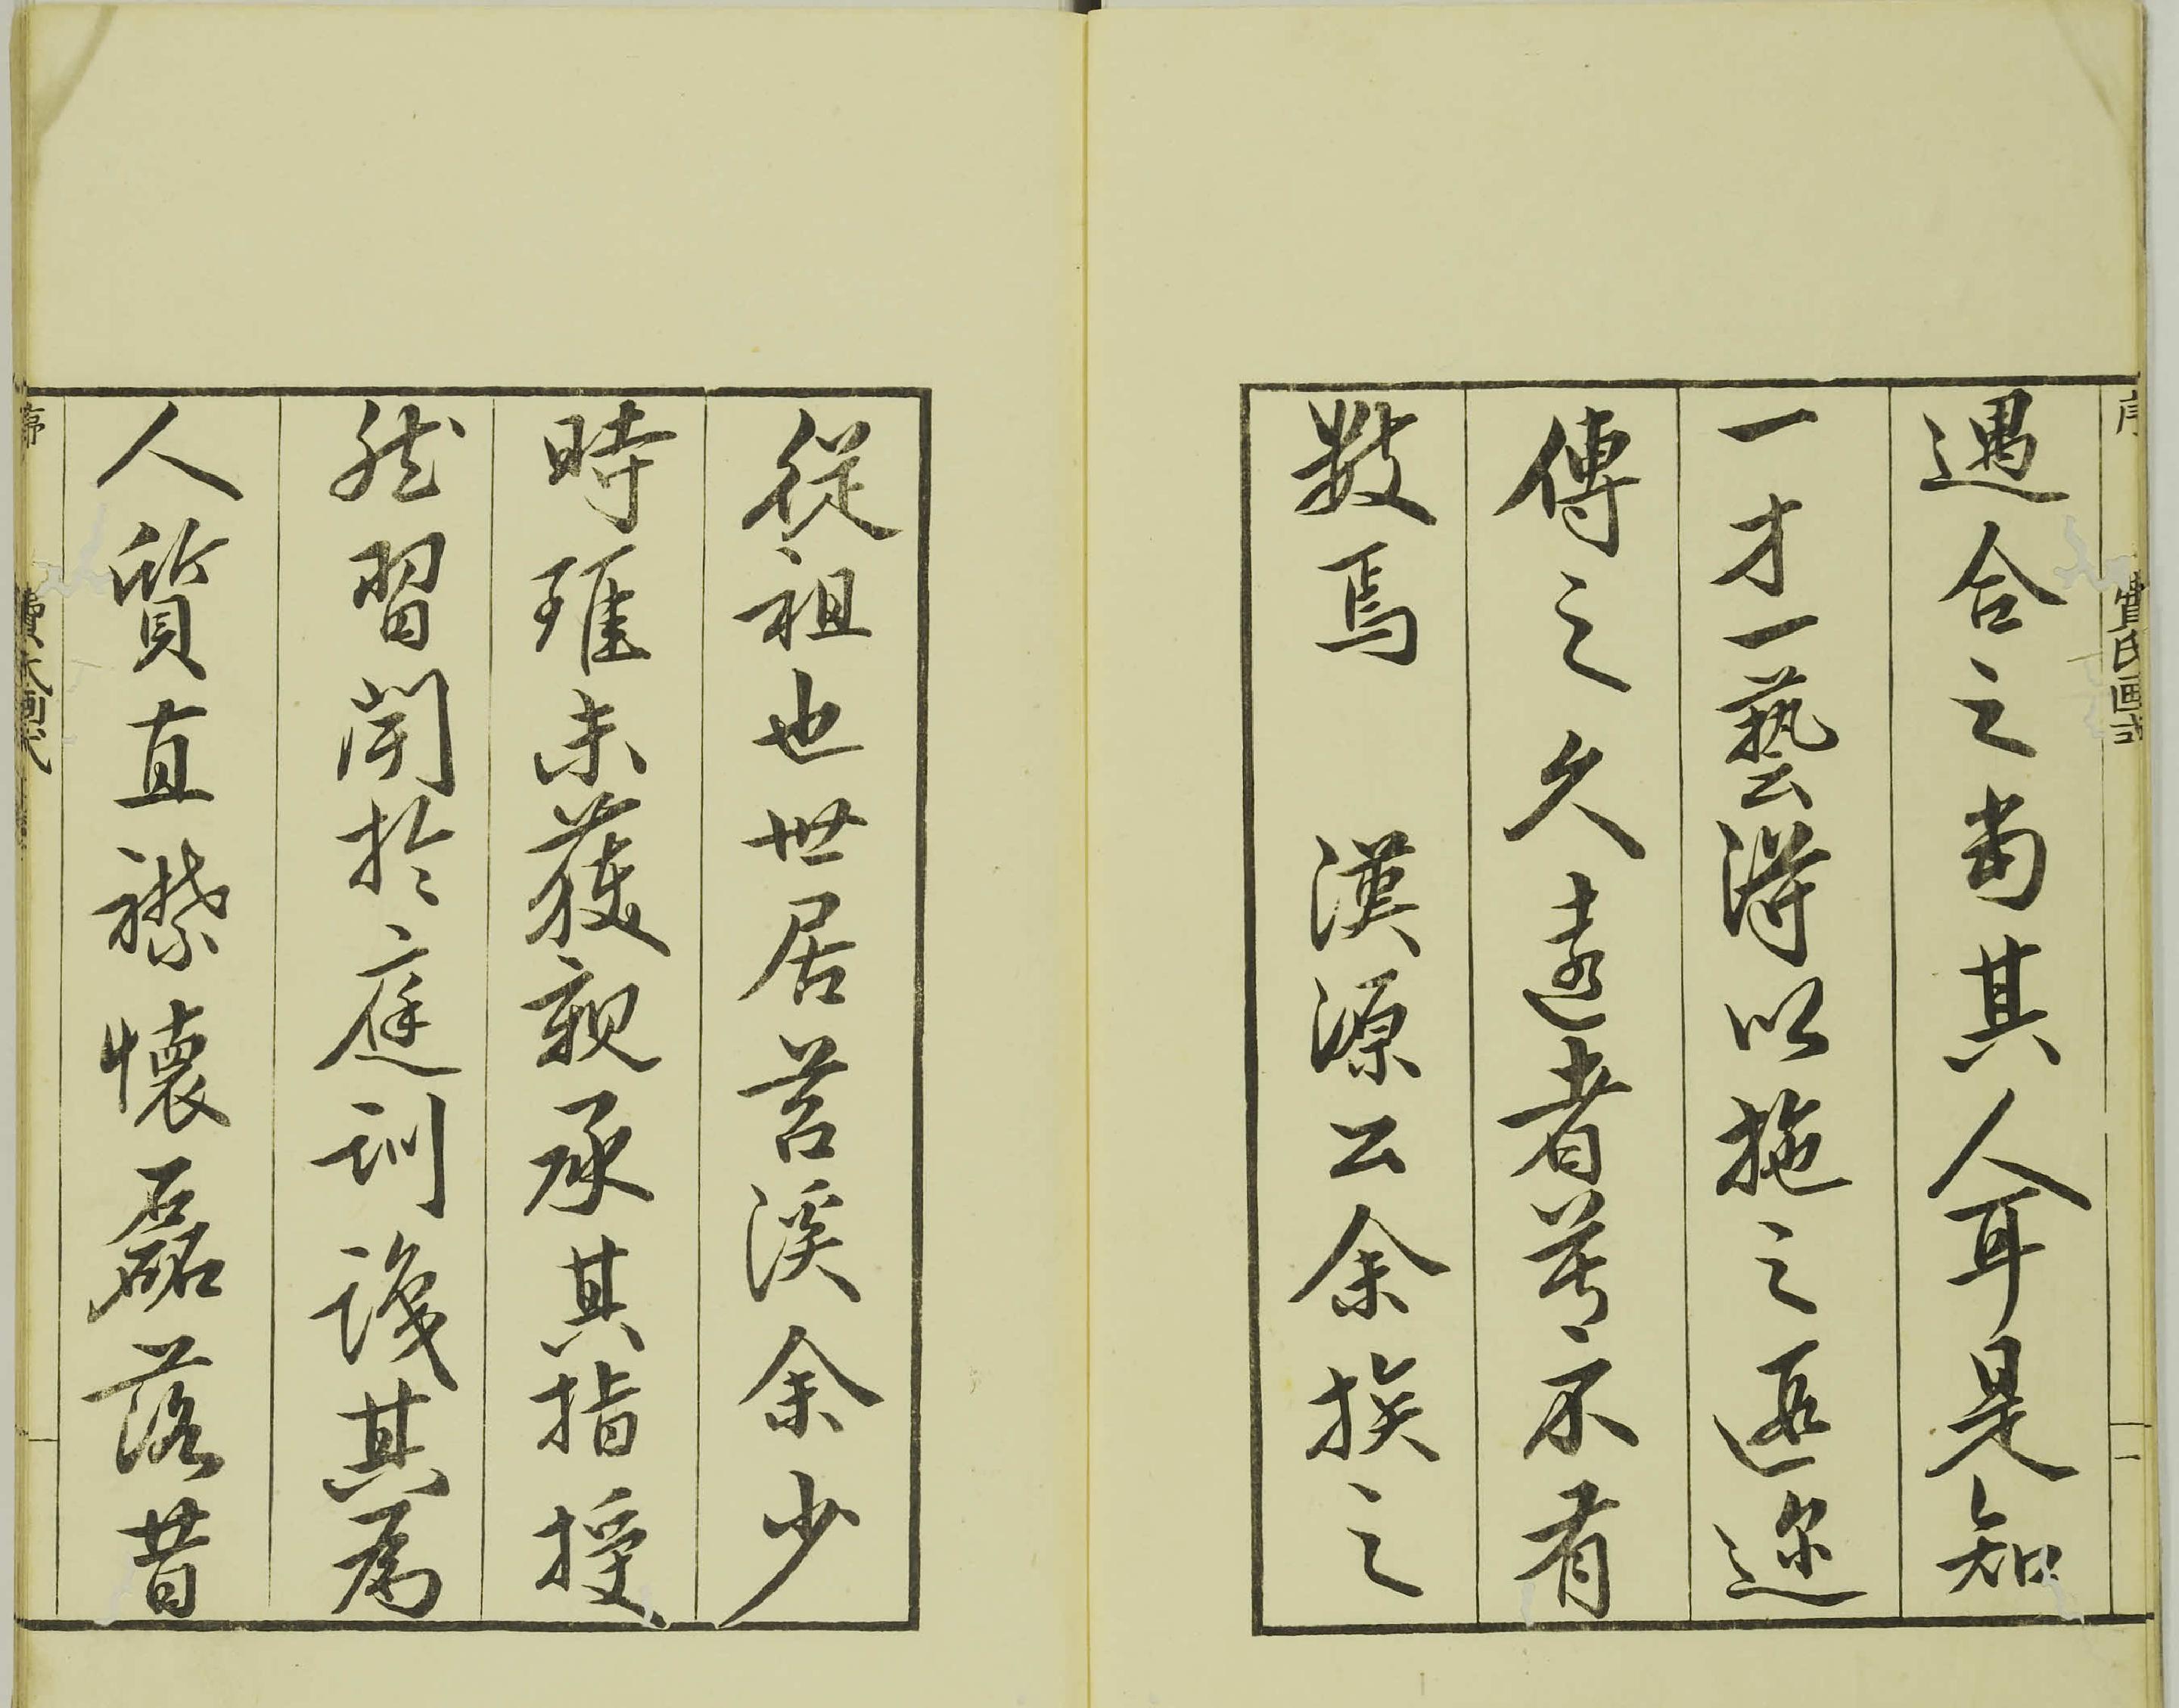 序 費氏画式 一
遇合之尚其人耳是知
一才一藝得以拖之遐迩
傳之久遠者莫不有
數焉 漢源公余族之
從祖也世居苕溪余少
時雖未獲親承其指授
然習聞於庭訓識其為
人質直襟懷磊落昔
序 費氏画式